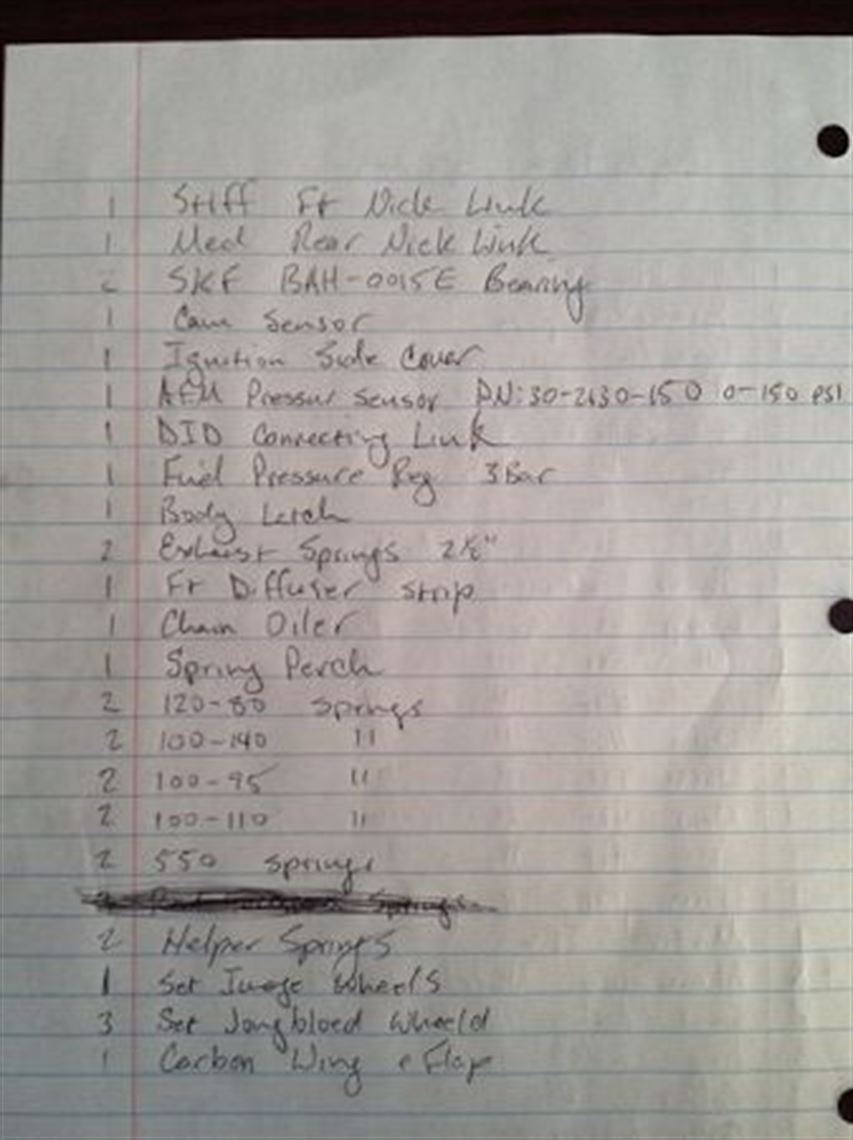 1 Stiff Ft Nick Link
1 Med Rear Nick Link
2 SKF BAH-0015E Bearing
1 Cam Sensor
1 Ignition Side Cover
1 AFM Pressur sensor PN:30-2630-150 0-150 PSI
1 DID Connecting Link
1 Fuel Pressure Reg 3Bar
1 Body
2 Exhaust Springs
1 Ft Diffuser strip
1 Chain Oiler
1 Spring Perch
2 120-80 springs
2 100-140 "
2 100-95 "
2 100-110 "
2 550 springs
Springs
2 Helper Springs
1 Set Image Wheels
3 Set Jongbloed Wheeld
1 Carbon Wing Flap